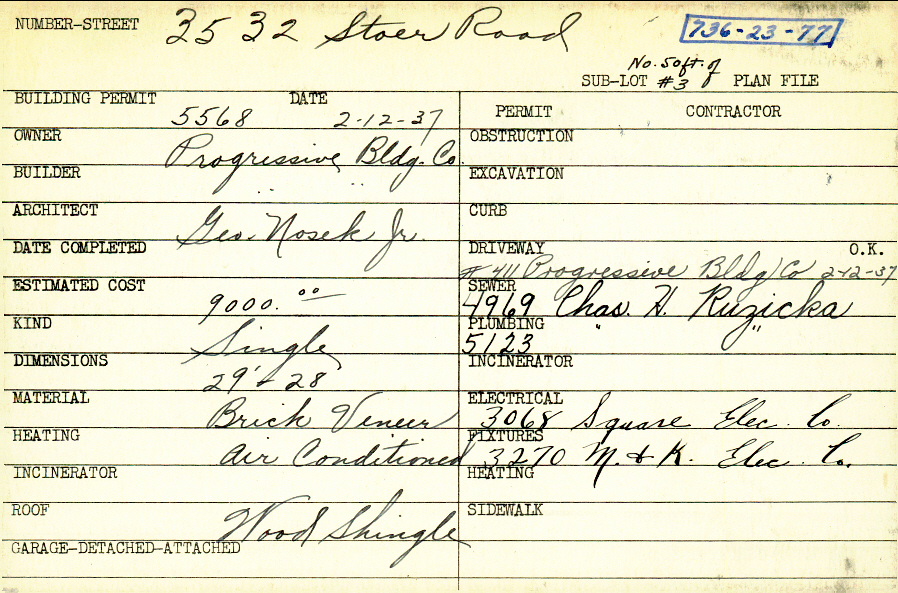 NUMBER-STREET 3532 Stoer Road 736-23-77
No. 50ft. of
SUB-LOT #3 PLAN FILE
BUILDING PERMIT 5568 DATE 2-12-37
OWNER Progressive Bldg. Co.
BUILDER " "
ARCHITECT Geo. Nosek Jr.
DATE COMPLETED
ESTIMATED COST 9000.00
KIND Single
DIMENSIONS 29' + 28'
MATERIAL Brick Veneer
HEATING Air Conditioned
INCINERATOR
ROOF Wood Shingle
GARAGE-DETACHED-ATTACHED
PERMIT CONTRACTOR
OBSTRUCTION
EXCAVATION
CURB
DRIVEWAY O.K.
# 411 Progressive Bldg Co 2-12-37
SEWER
4969 Chas. H. Ruzicka
PLUMBING " "
5123
INCINERATOR
ELECTRICAL
3068 Square Elec. Co.
FIXTURES
3270 M. & K. Elec. Co.
HEATING
SIDEWALK